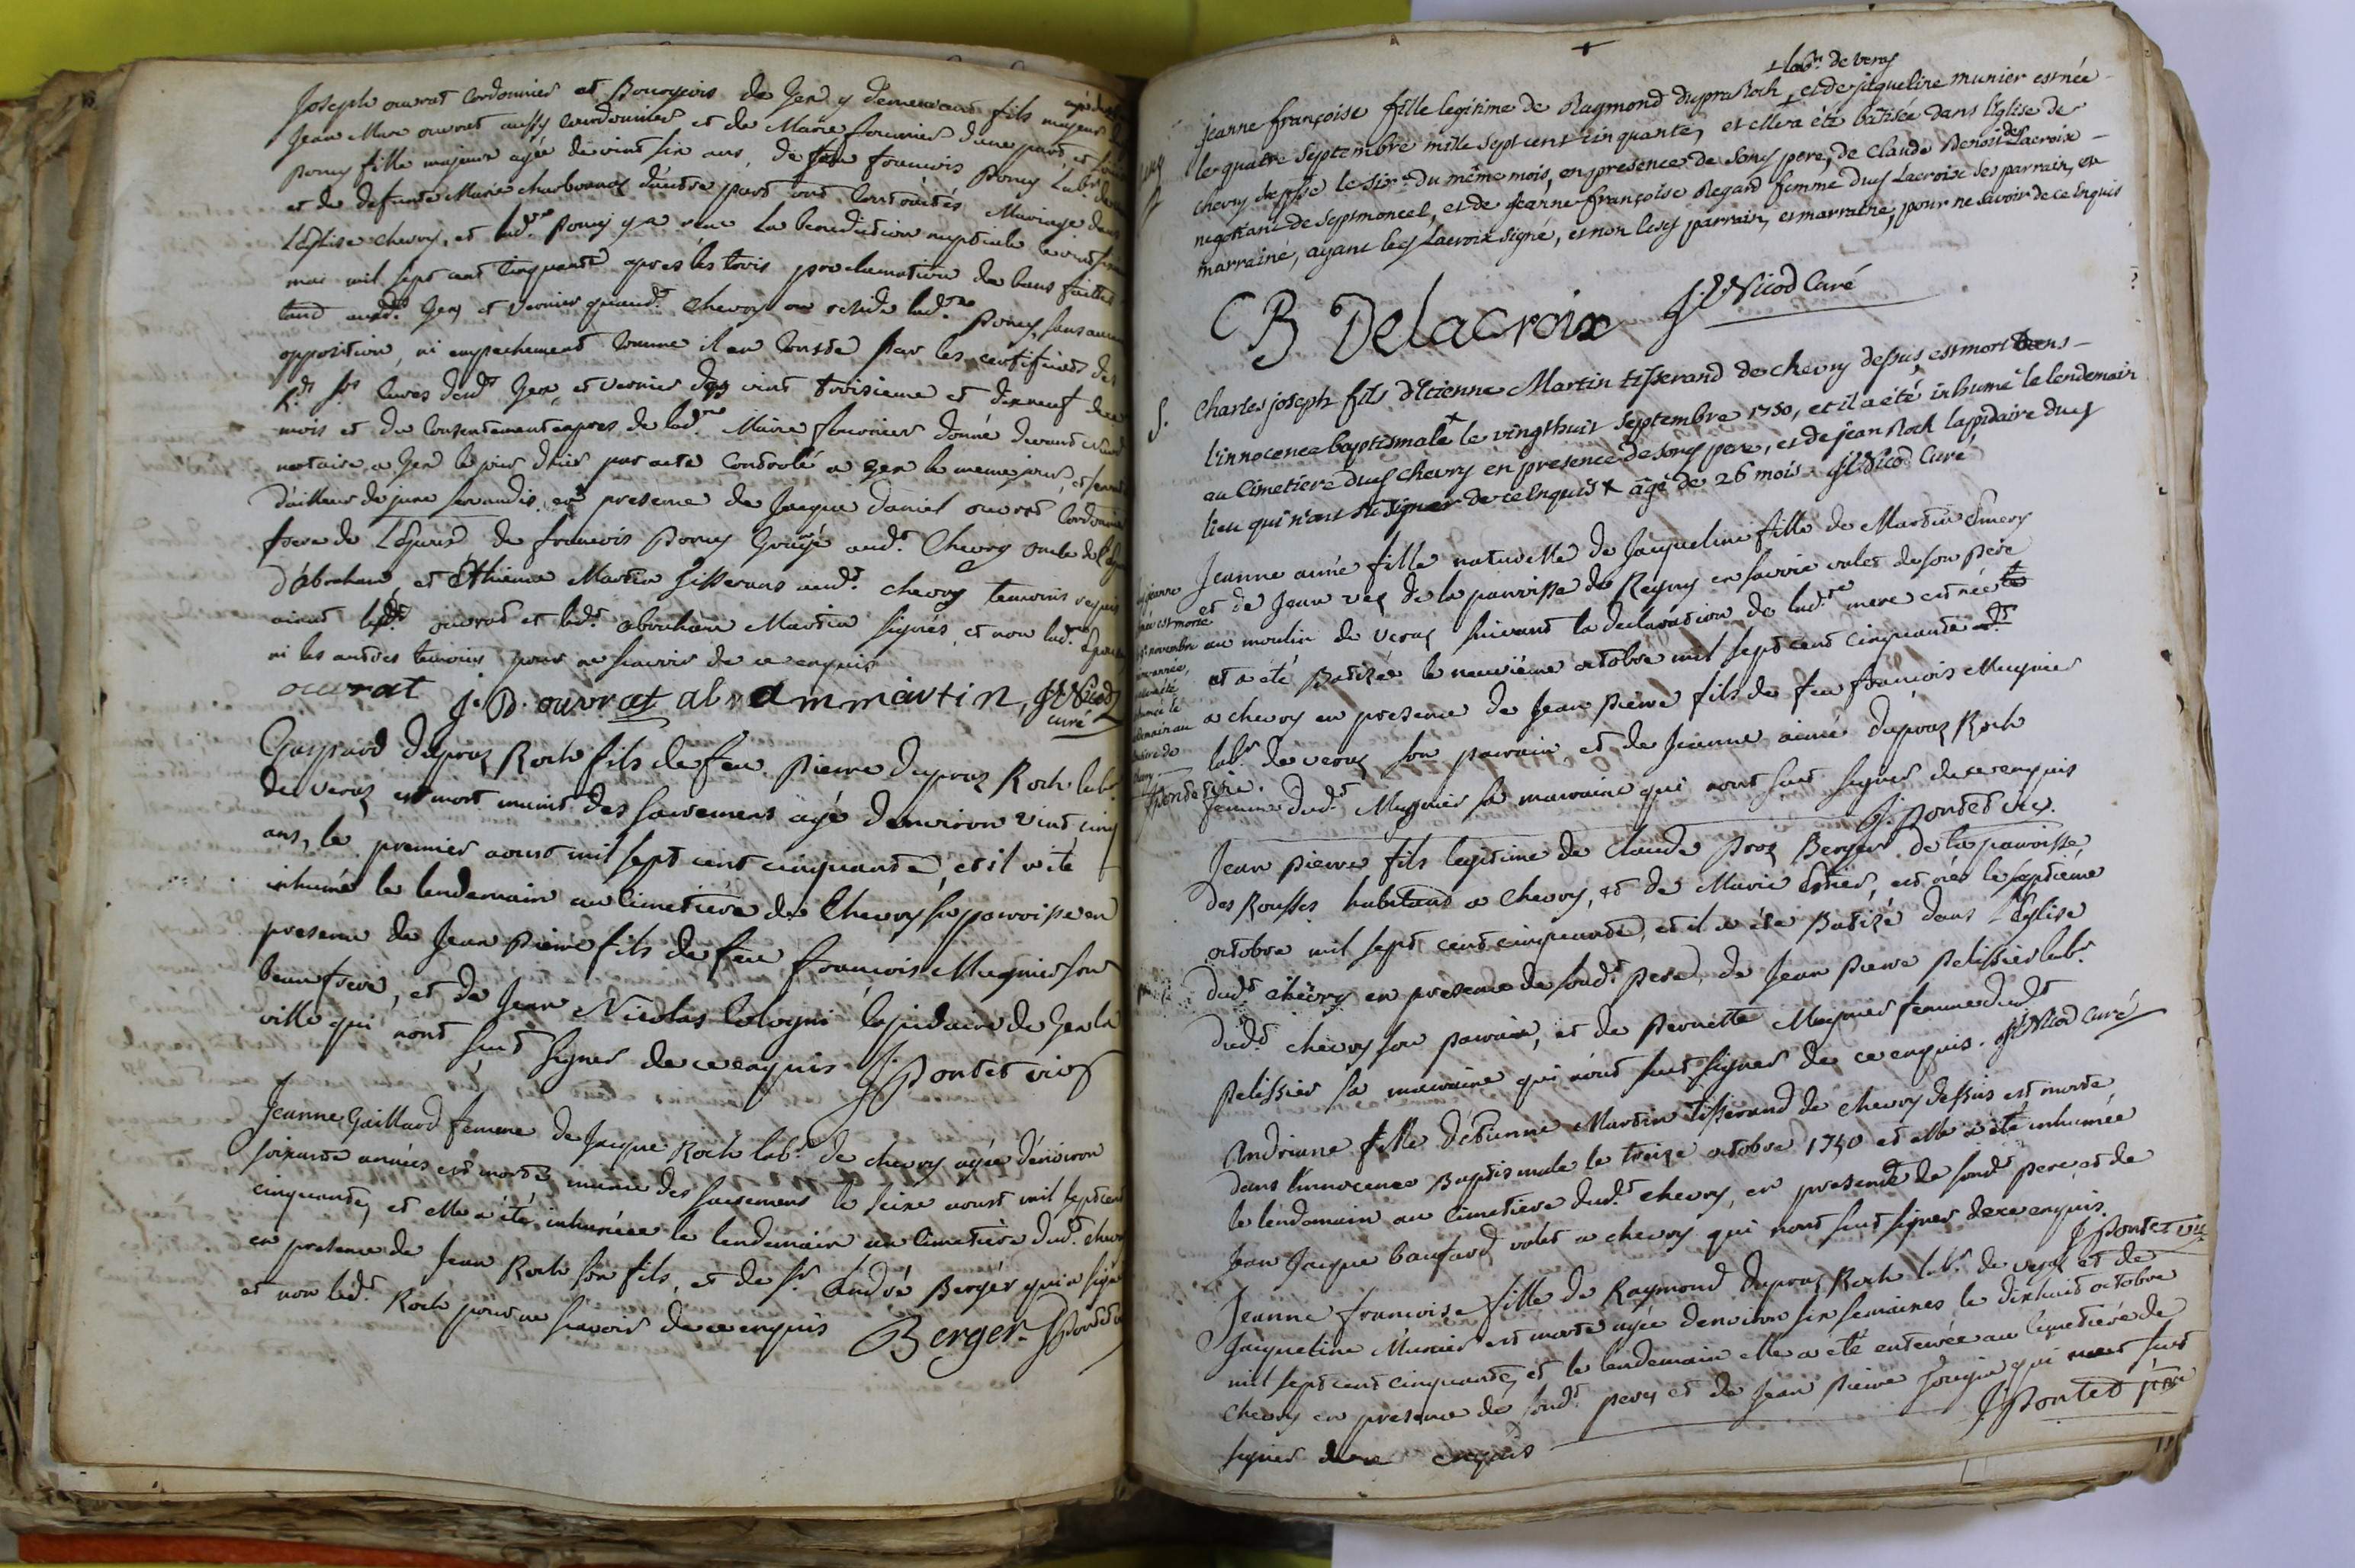 Joseph ouvrat Cordonnier et Bourgeois de Gex y demeurant fils majeur
Jean Marc ouvrat aussy Courdonnier et de Marie fournier d'une part, et
Poncy fille majeure agée de vint six ans, de feu francois Poncy Labr.
et de defunte Marie charbonnez d'autre part ont Contractés Mariage dans
L'Eglise chevry, et lad.te Poncy y a recu La benediction nuptiale le vint
mai mil sept cent Cinquante apres les trois proclamations de bans faittes
tand aud.t Gex et Vernier quaud.t Chevry ou reside lad.te Poncy, sans aucune
opposition, ni empechement Comme il en Conste par les certificats des
R.ds Srs Curés dud.t Gex et Vernier des vint troisieme et dixneuf
mois et du Consentement expres de lad.te Marie fournier donné devant
nottaire a Gex le jour d'hier par acte Controlé a Gex le meme jour, et
d'ailleur de jure servandis, en presence de Jacque Daniel ouvrat Cordonnier
frere de L'Epoux de francois Poncy aud.t Chevry oncle de l'Ep
d'abraham, et Ethienne Martin Tisserans aud.t chevry temoins requis
aiant led.t ouvrat et led.t abraham Martin signés, et non lad.te Epouse
ni les autres temoins pour ne scavoir de ce enquis
ouvrat J. D. ouvrat abram martin, Nicod
curé
Gaspard dupraz Roch fils de feu Pierre dupraz Roch labr
de veraz est mort munit des sacremens agé d'environ vint cinq
ans, le premier aoust mil sept cent cinquante, et il a ete
inhumé le lendemain au Cimetiere de Chevry sa parroisse en
presence de Jean Pierre fils de feu francois Mugnier son
beaufrere, et de Jean Nicolas Cologni lapidaire de Gex la
ville qui n'ont sceut signer de ce enquis J. Pontet vic
Jeanne Gaillard femme de Jacque Roch labr. de chevry agée d'environ
soixante années est morte munie des sacremens le seize aoust mil sept cent
cinquante, et elle a été inhumée le lendemain au Cimetiere dud.t Chevry
en presence de Jean Roch son fils, et de Sr. André Berger qui a signé
et non led.t Roch pour ne scavoir de ce enquis Berger Pontet
+ labr. de veraz
jeanne françoise fille legitime de Raymond dupra Roch + et de jaqueline munier est née
le quatre Septembre mille sept cent cinquante, et elle a été batisée dans l'Eglise de
chevry dessus le six du même mois, en presence de Son pere, de Claude Benoit de Lacroix
negotiant de Septmoncel, et de Jeanne françoise Regard femme dud Lacroix Ses parrain, et
marraine, ayant led Lacroix signé, et non lesd parrain, et marraine, pour ne savoir de ce Enquis
C B Delacroix Nicod Curé
S.
Charles joseph fils d'Etienne Martin tisserand de chevry dessus, est mort dans
l'innocence baptismale + le vingt huit Septembre 1750, et il a été inhumé le lendemain
au Cimetiere dud Chevry en presence de Son pere, et de jean Roch lapidaire dud
lieu qui n'ont sçu signer de ce Enquis + âgé de 26 mois Nicod Curé
Jeanne aimé fille naturelle de Jacqueline fille de Martin Emery
et de Jean vez de la parroisse de Reyny en savoie valet de son Pere
au moulin de veraz suivant la declaration de lad.te mere est née
et a été Batizée le neuviéme octobre mil sept cent cinquante
a chevry en presence de Jean Pierre fils de feu francois Mugnier
labr. de veraz son parrain, et de Jeanne aimé dupraz Roch
femme dud.t Mugnier sa marraine qui n'ont sceut signer de ce enquis
J. Pontet vic.
est morte
novembre
Jean Pierre fils legitime de Claude Proz Berger de la parroisse
des Rousses habitand a Chevry, et de Marie Emer, est née le séptiéme
octobre mil sept cent cinquante, et il a éte Batizé dans L'Eglise
dud.t chevry en presence de sond.t pere, de Jean Pierre Pelissier labr.
dud.t chevry son parrain, et de Pernette Mugnier femme dud.t
Pelissier sa marraine qui n'ont sceut signer de ce enquis. Nicod Curé
Andriane fille d'Etienne Martin Tisserand de chevry dessus est morte
dans l'innocence Baptismale le treize octobre 1750 et elle a été inhumée
le lendemain au Cimetiere dud.t chevry, en presence de sond.t pere et de
Jean Jacque baufard valet a chevry qui n'ont sceut signer de ce enquis.
J Pontet vic
Jeanne francoise fille de Raymond dupraz Roch labr. de veraz et de
Jacqueline Munier est morte agée d'environ six semaines le dixhuit octobre
mil sept cent cinquante, et le lendemain elle a été enterrée au Cimetiére de
Chevry en presence de sond.t pere, et de Jean Pierre qui n'ont sceut
signer de ce enquis J Pontet